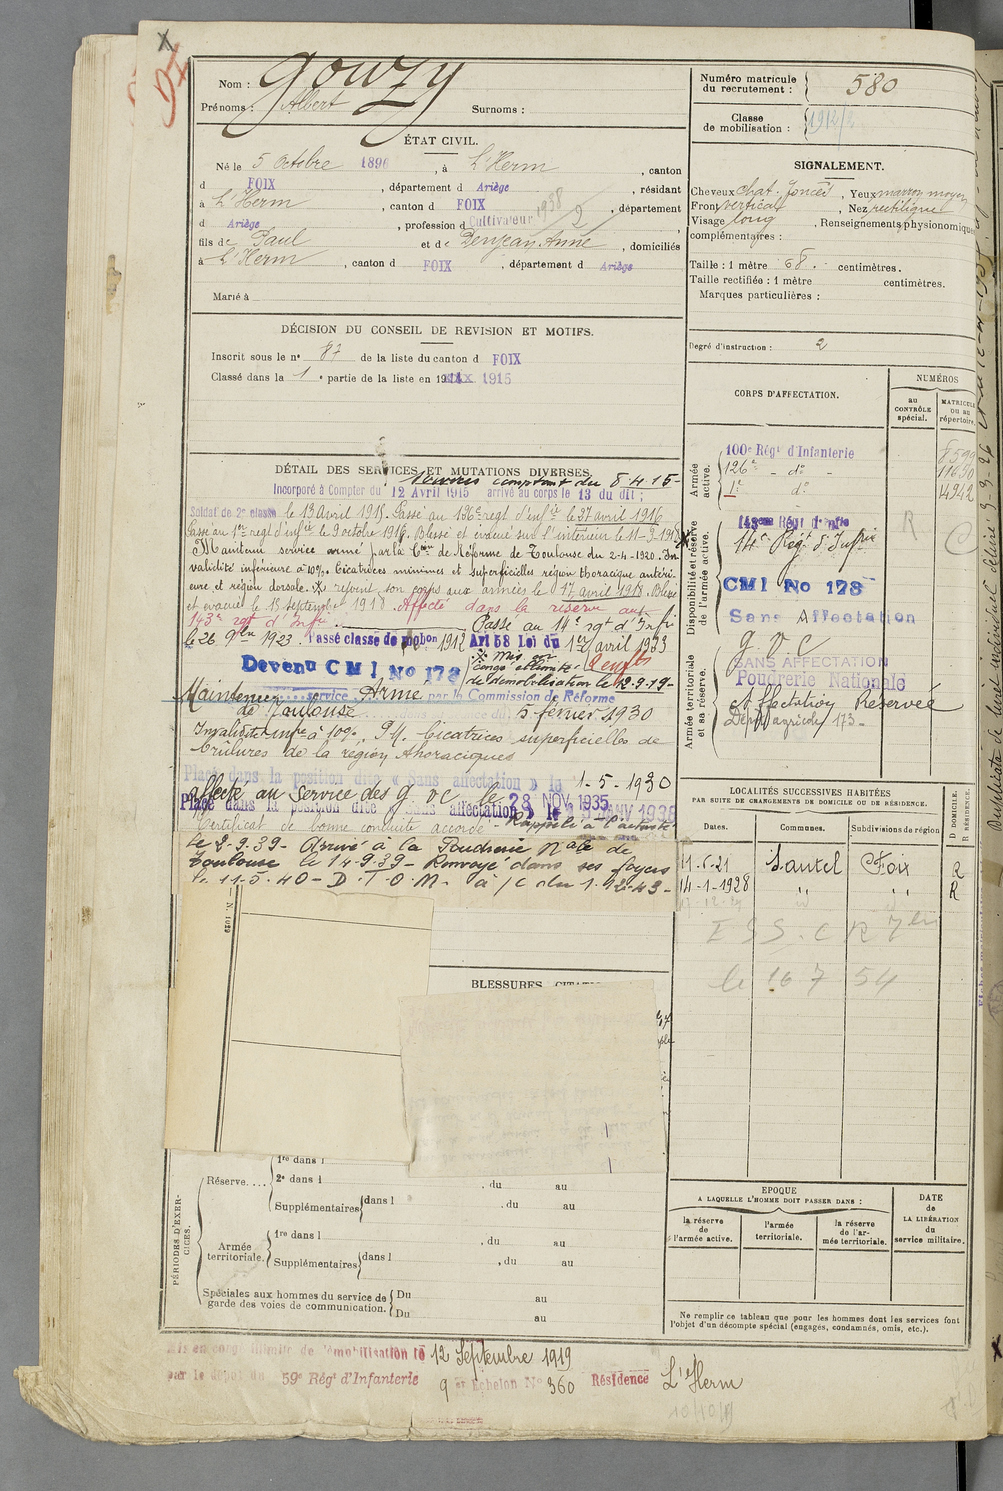 X
Nom : Gouzy
Prénoms : Albert Surnoms :
Numéro matricule du recrutement : 580
Classe de mobilisation : 1912/2
ÉTAT CIVIL.
Né le 5 Octobre 1896, à L'Herm, canton
d FOIX, département d Ariège, résidant
à L'Herm, canton d FOIX, département
d Ariège, profession d Cultivateur 1938/2
fils de Paul et de Denjean Anne, domiciliés
à L'Herm, canton d FOIX, département d Ariège
Marié à
SIGNALEMENT.
Cheveux chat. foncés, Yeux marron moyen
Front vertical, Nez rectiligne
Visage long, Renseignements physionomiques
complémentaires :
Taille : 1 mètre 68. centimètres.
Taille rectifiée : 1 mètre centimètres.
Marques particulières :
Degré d'instruction : 2
DÉCISION DU CONSEIL DE REVISION ET MOTIFS.
Inscrit sous le n° 87 de la liste du canton d FOIX
Classé dans la 1e partie de la liste en 1915
CORPS D'AFFECTATION.
NUMÉROS
au CONTRÔLE spécial.
MATRICULE ou au répertoire.
Armée active.
100e Régt d'Infanterie 8599
126e - do - 11690
1r do 14942
Disponibilité et réserve de l'armée active.
143eme Régt d'Infie
14e Régt d'Infrie
CMI No 173
Sans Affectation
R
C
Armée territoriale et sa réserve.
g v c
SANS AFFECTATION
Poudrerie Nationale
Affectation Réservée
Dépôt agricole 173-
DÉTAIL DES SERVICES ET MUTATIONS DIVERSES.
Services comptant du 8.4.15-
Incorporé à Compter du 12 Avril 1915 arrivé au corps le 13 du dit ;
Soldat de 2e classe le 13 avril 1915. Passé au 126e regt d'infie le 27 avril 1916
Passé au 1er regt d'infie le 9 octobre 1916. Blessé et évacué sur l'intérieur le 11-3-1918
Maintenu service armé par la Con de Réforme de Toulouse du 2-4-1920. In
validité inférieure à 10%. Cicatrices minimes et superficielles région thoracique antéri-
eure et région dorsale. rejoint son corps aux armées le 17 avril 1918. Blessé
et évacué le 13 septembre 1918. Affecté dans la réserve au
143e rgt d'Infie Passé au 14e rgt d'Infri
le 26 9bre 1923 Passé classe de mobon 1912 Art 58 Loi du 1er avril 1923
Devenu C M I No 173
Mis en
congé illimité
de démobilisation le 12-9-19-
Maintenu service Armé par la Commission de Réforme
de Toulouse 5 février 1930
Invalidité infre à 10%. P.M. Cicatrices superficielles de
brûlures de la région thoracique
Placé dans la position dite « Sans affectation » le 1-5-1930
affecté au service des g v c le 28 NOV 1935
Placé dans la position dite « sans affectation » le JANV 1938
Certificat de bonne conduite accordé - Rappelé à l'activité
le 2-9-39- Arrivé à la Poudrerie Nale de
Toulouse le 14-9-39- Renvoyé dans ses foyers
le 11-5-40- D.T.O.M. à /c du 1-12-43-
N. 1029
BLESSURES, CITATIONS
LOCALITÉS SUCCESSIVES HABITÉES
PAR SUITE DE CHANGEMENTS DE DOMICILE OU DE RÉSIDENCE.
Dates. Communes. Subdivisions de région D DOMICILE. R RÉSIDENCE.
11-6-21 Sautel Foix R
14-1-1928 " " R
E S S. C R 7bre
le 16 7 54
PÉRIODES D'EXERCICES.
1re dans l
Réserve.... 2e dans l , du au
Supplémentaires dans l , du au
Armée territoriale. 1re dans l , du au
Supplémentaires dans l , du au
Spéciales aux hommes du service de garde des voies de communication. Du au
Du au
EPOQUE
A LAQUELLE L'HOMME DOIT PASSER DANS :
la réserve de l'armée active.
l'armée territoriale.
la réserve de l'armée territoriale.
DATE de LA LIBÉRATION du service militaire.
Ne remplir ce tableau que pour les hommes dont les services font
l'objet d'un décompte spécial (engagés, condamnés, omis, etc.).
Mis en congé illimité de démobilisation le 12 Septembre 1919
par le dépôt du 59e Régt d'Infanterie 9e Echelon No 360 Résidence L'Herm